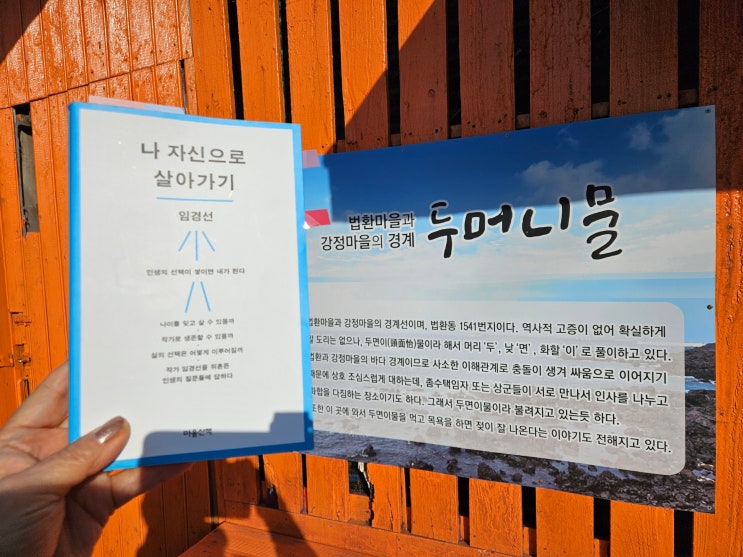 나 자신으로
살아가기
임경선
인생의 선택이 쌓이면 내가 된다
나이를 잊고 살 수 있을까
작가로 생존할 수 있을까
삶의 선택은 어떻게 이루어질까
작가 임경선을 뒤흔든
인생의 질문들에 답하다
마음산책
법환마을과
강정마을의 경계
두머니물
법환마을과 강정마을의 경계선이며, 법환동 1541번지이다. 역사적 고증이 없어 확실하게
알 도리는 없으나, 두면이(頭面怡)물이라 해서 머리 '두', 낯 '면' , 화할 '이' 로 풀이하고 있다.
법환과 강정마을의 바다 경계이므로 사소한 이해관계로 충돌이 생겨 싸움으로 이어지기
때문에 상호 조심스럽게 대하는데, 좀수택임자 또는 상군들이 서로 만나서 인사를 나누고
화합을 다짐하는 장소이기도 하다. 그래서 두면이물이라 불려지고 있는듯 하다.
또한 이 곳에 와서 두면이물을 먹고 목욕을 하면 젖이 잘 나온다는 이야기도 전해지고 있다.